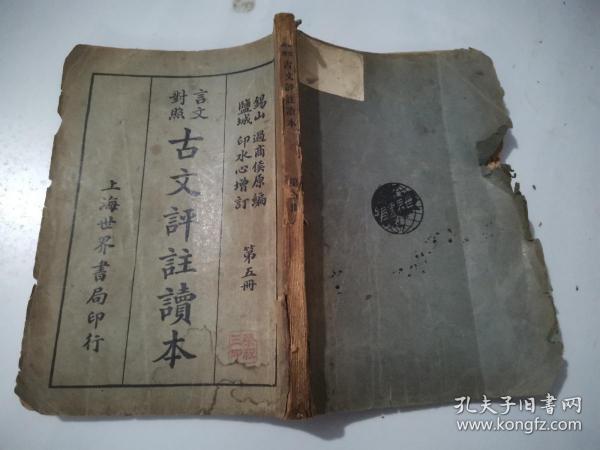 錫山 過商侯原編
鹽城 印水心增訂
第五冊
言文
對照
古文評註讀本
上海世界書局印行
古文評註讀本
世界書局
孔夫子旧书网
www.kongfz.com